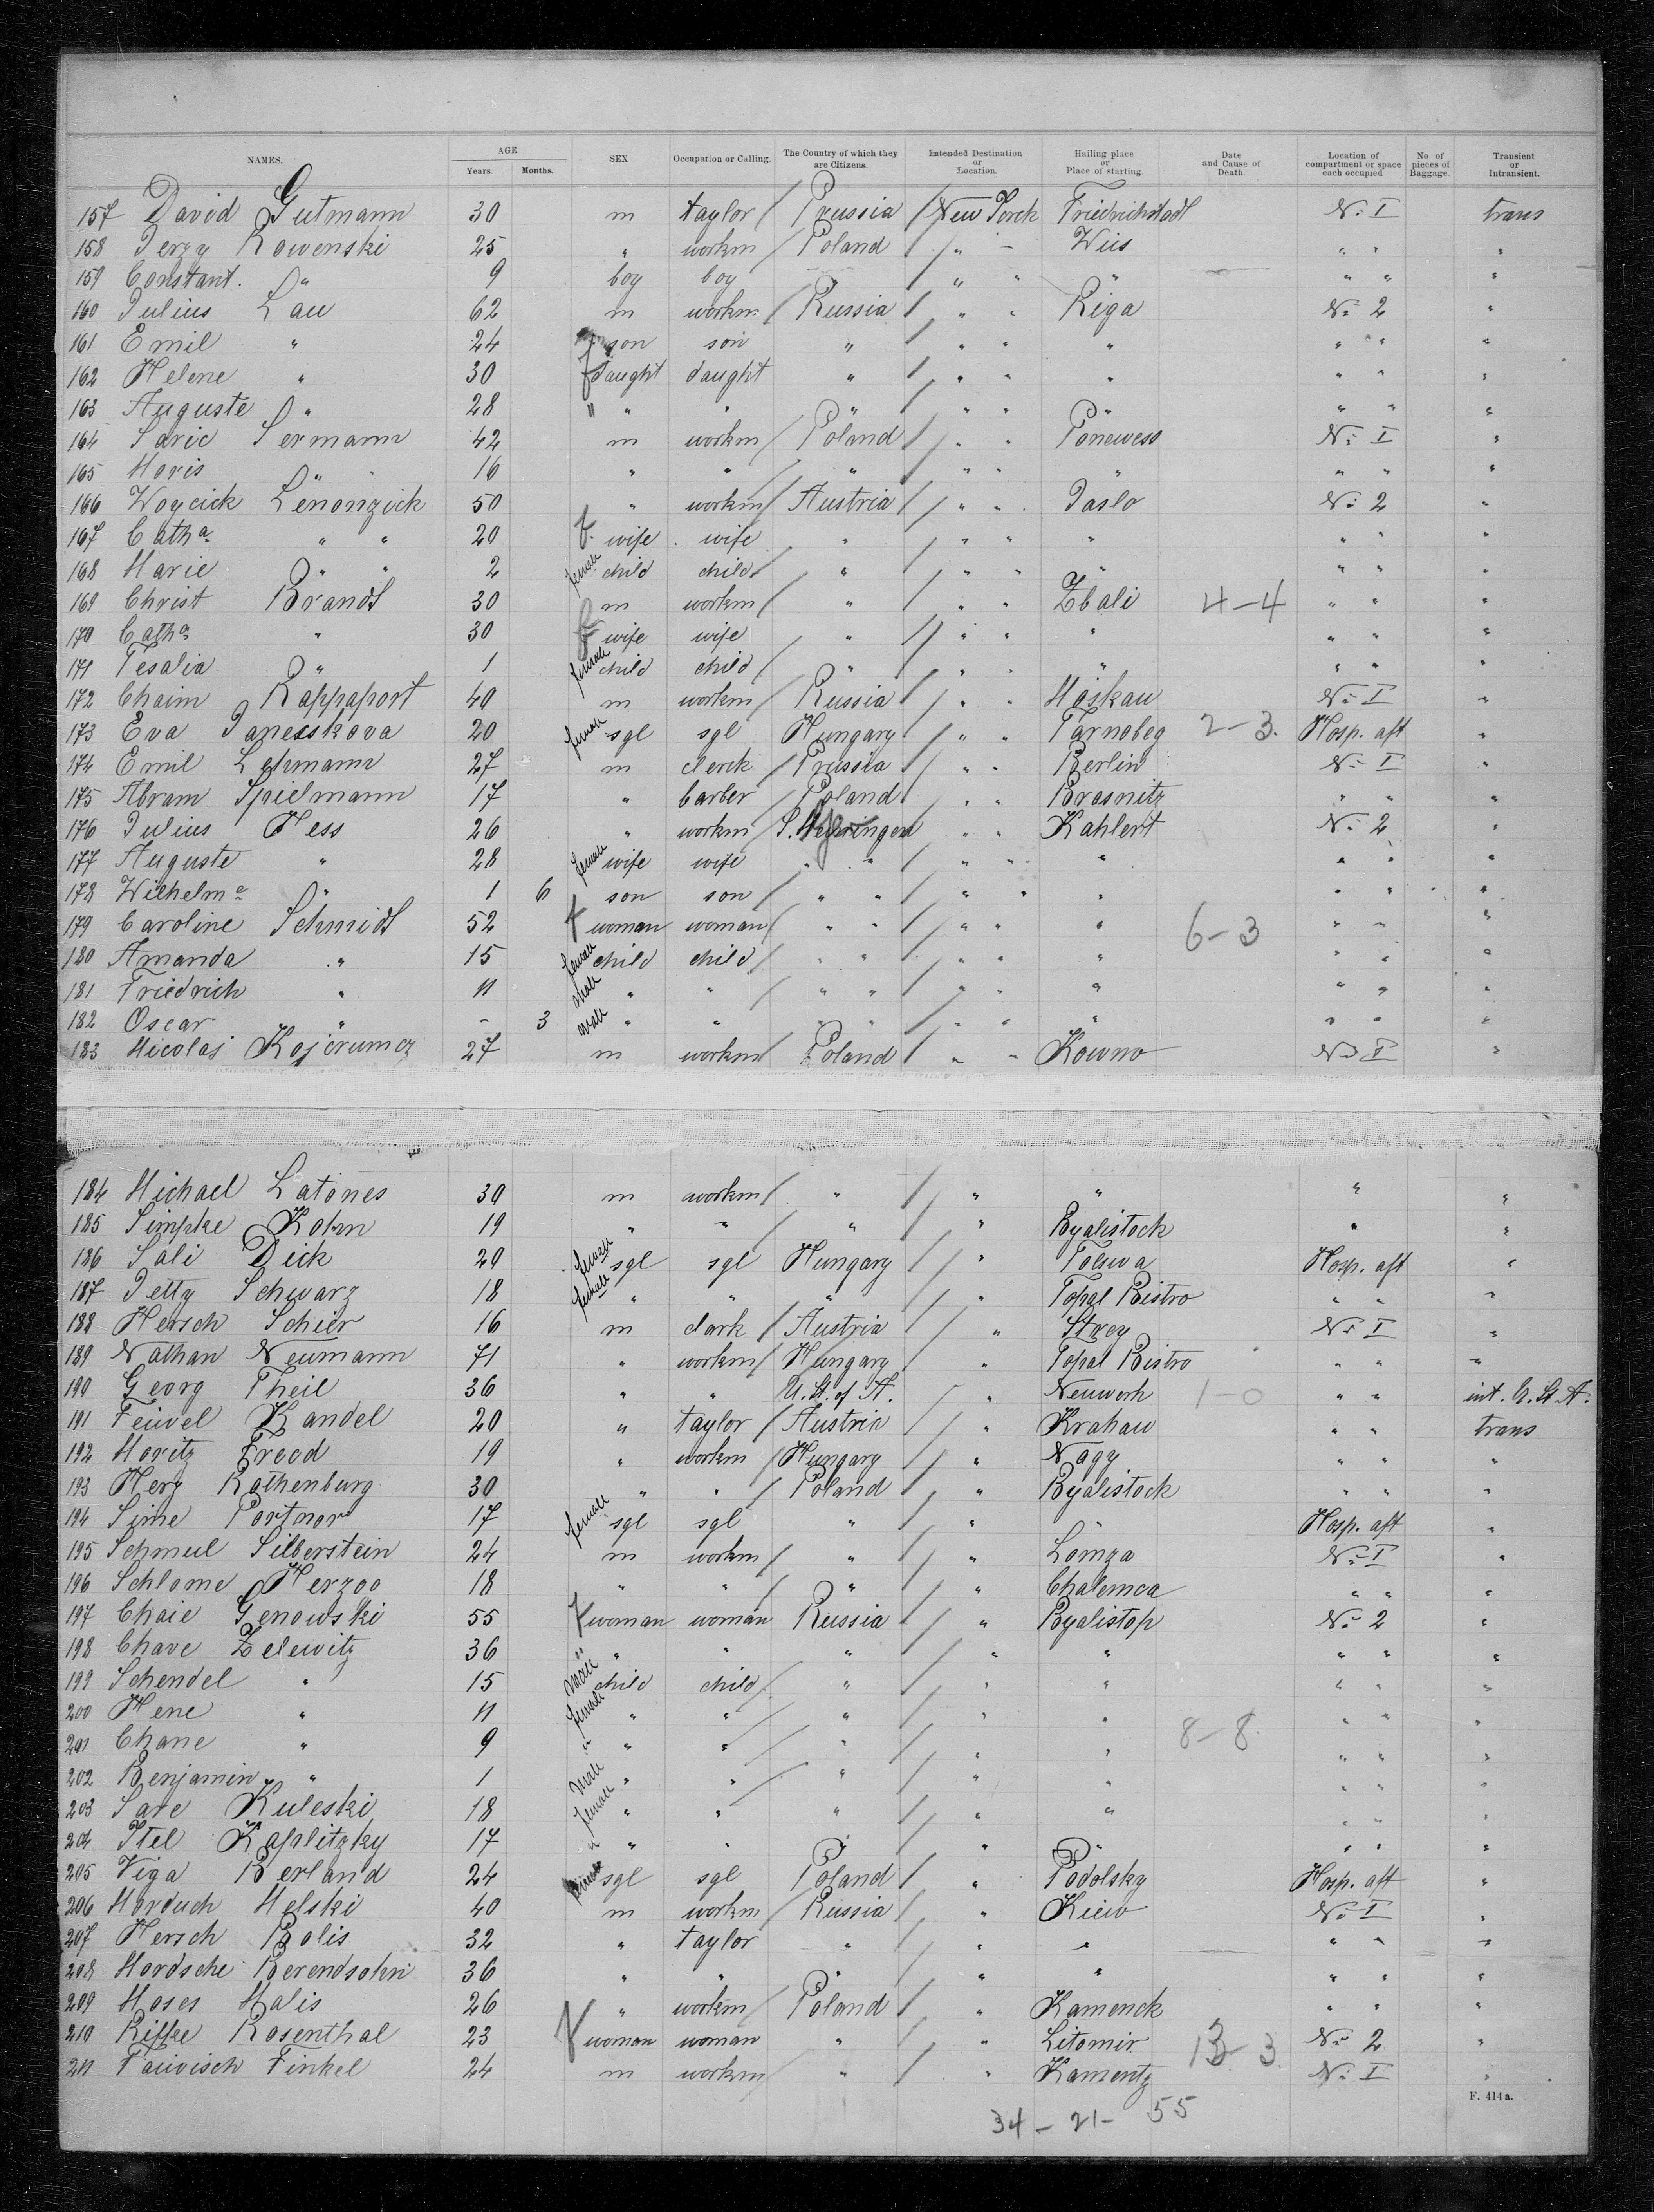 NAMES. AGE Years. Months. SEX Occupation or Calling. The Country of which they are Citizens. Intended Destination or Location. Hailing place or Place of starting. Date and Cause of Death. Location of compartment or space each occupied No. of pieces of Baggage. Transient or Intransient.
157 David Gutmann 30 m taylor / Prussia / New Yorck Friedrichstadt No I trans
158 Jerzy Rowenski 25 " workm / Poland / " " Wiis " " "
159 Constant. " 9 boy boy " " " " " " "
160 Julius Lau 62 m workm / Russia / " " Riga No 2 "
161 Emil " 24 son son " / " " " " " "
162 Helene " 30 f daught daught " / " " " " " "
163 Auguste " 28 " " " " / " " " " " "
164 Saric Sermann 42 m workm / Poland / " " Ponewess No I "
165 Moris " 16 " " / " / " " " " " "
166 Woycick Lenonzick 50 " workm / Austria / " " Jaslo No 2 "
167 Catha " " 20 f. wife wife " / " " " " " "
168 Marie " " 2 female child child " / " " " " " "
169 Christ Brandt 30 m workm / " / " " Zbali 4-4 " " "
170 Catha " 30 f wife wife " / " " " " " "
171 Tesalia " 1 female child child " / " " " " " "
172 Chaim Rappaport 40 m workm / Russia / " " Moskau No I "
173 Eva Janesskova 20 female sgl sgl Hungary / " " Tarnobeg 2-3. Hosp. aft "
174 Emil Lehmann 27 m clerck / Prussia / " " Berlin No I "
175 Abram Spielmann 17 " barber / Poland / " " Brasnitz " " "
176 Julius Hess 26 " workm / " " Kahlert No 2 "
177 Auguste " 28 female wife wife " " / " " " " " "
178 Wilhelme " 1 6 son son " " / " " " " " "
179 Caroline Schmidt 52 f woman woman / " " / " " " " " "
6-3
180 Amanda " 15 female child child / " " / " " " " " "
181 Friedrich " 11 male " " / " " / " " " " " "
182 Oscar " - 3 male " " / " " / " " " " " "
183 Nicolaj Kojerumcz 27 m workm / Poland / " " Kowno No I "
184 Michael Latones 30 m workm / " / " " " "
185 Simpke Kohn 19 " " / " / " Byalistock " "
186 Sali Dick 20 female sgl sgl Hungary / " Tolswa Hosp. aft "
187 Jetty Schwarz 18 female " " " / " Topal Bistro " " "
188 Hersch Schier 16 m clark / Austria / " Strey No I "
189 Nathan Neumann 71 " workm / Hungary " Topal Bistro " " "
190 Georg Theil 36 " " U. St. of A. " Neuwerh 1-0 " " int. U. St. A.
191 Feiwel Kandel 20 " taylor / Austria / " Krakau " " trans
192 Moritz Freod 19 " workm / Hungary / " Nagy " " "
193 Herz Rothenburg 30 " " / Poland / " Byalistock " " "
194 Sime Portnor 17 female sgl sgl " / " " Hosp. aft "
195 Schmul Silberstein 24 m workm / " / " Lomza No I "
196 Schlome Herzoo 18 " " / " / " Chalemca " " "
197 Chaie Genowski 55 f woman woman Russia / " Byalistop No 2 "
198 Chave Zelewitz 36 " " " " / " " " " "
199 Schendel " 15 male child child / " / " " " " "
200 Hene " 11 female " " / " / " " " " "
201 Chane " 9 " " " / " / " " 8-8. " " "
202 Benjamin " 1 male " " / " / " " " " "
203 Sare Kuleski 18 female " " " / " " " " "
204 Itel Kaplitzky 17 " " " " / " " " " "
205 Viga Berland 24 female sgl sgl Poland / " Podolsky Hosp. aft "
206 Morduch Melski 40 m workm / Russia / " Kiew No I "
207 Hersch Bolis 32 " taylor " / " " " " "
208 Mordsche Berendsohn 36 " " " / " " " " "
209 Moses Malis 26 " workm / Poland / " Kamenck " " "
210 Riffke Rosenthal 23 f woman woman " / " Litomir No 2 "
13-3
211 Faiwisch Finkel 24 m workm " / " Kamentz No I "
F. 414a.
34 - 21 - 55